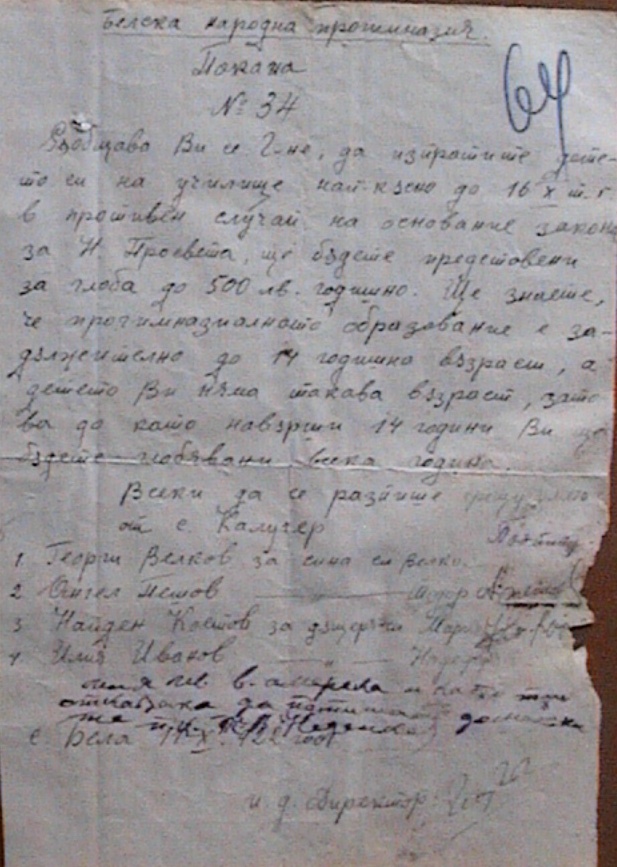 Белска народна прогимназия.
64
Покана
№ 34
Съобщава Ви се Г-не, да изпратите дете-
то си на училище най-късно до 16 X т. г.
в противен случай на основание закона
за Н. Просвета, ще бъдете представени
за глоба до 500 лв. годишно. Ще знаете,
че прогимназиалното образование е за-
дължително до 14 годишна възраст, а
детето Ви няма такава възраст, зато
ва до като навърши 14 години Ви ще
бъдете глобявани всека година.
Всеки да се разпише срещу името
от с. Калугер
1 Георги Велков за сина си Велко
2 Ангел Пешов — „ — Тодор
3 Найден Костов за дъщеря си Мар
4 Илия Иванов — „ — Надеж
отказаха да
с. Бела 11 X. 42 год.
и. д. Директор: